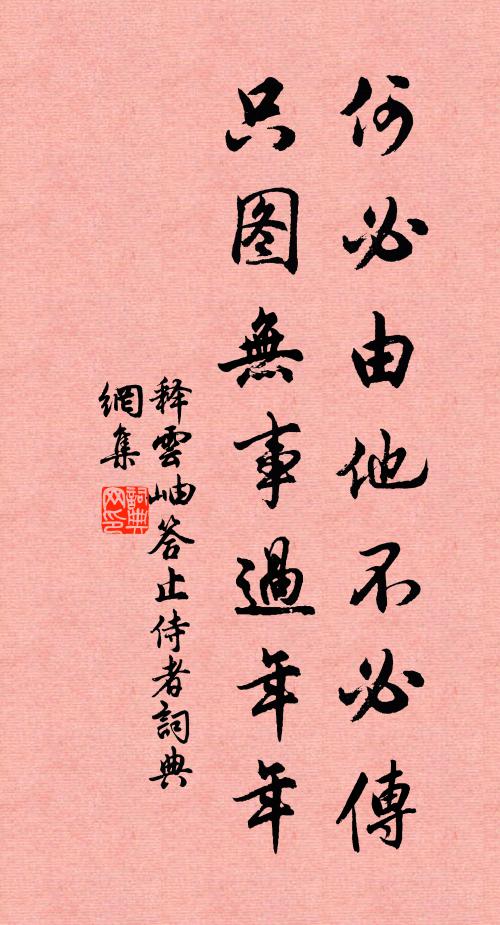 何必由他不必傳
只图無事過年年
释雲岫答止侍者詞典
網集
詞典
网印